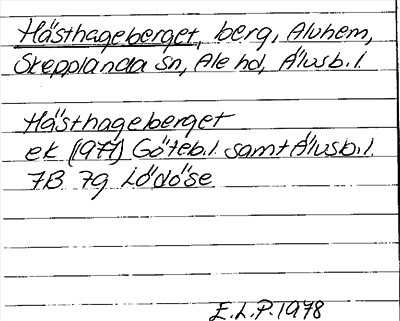 Hästhageberget, berg, Alvhem,
Skepplanda sn, Ale hd, Älvsb.l.
Hästhageberget
ek (1977) Göteb.l. samt Älvsb.l.
7B 7g Lödöse
E.L.P. 1978